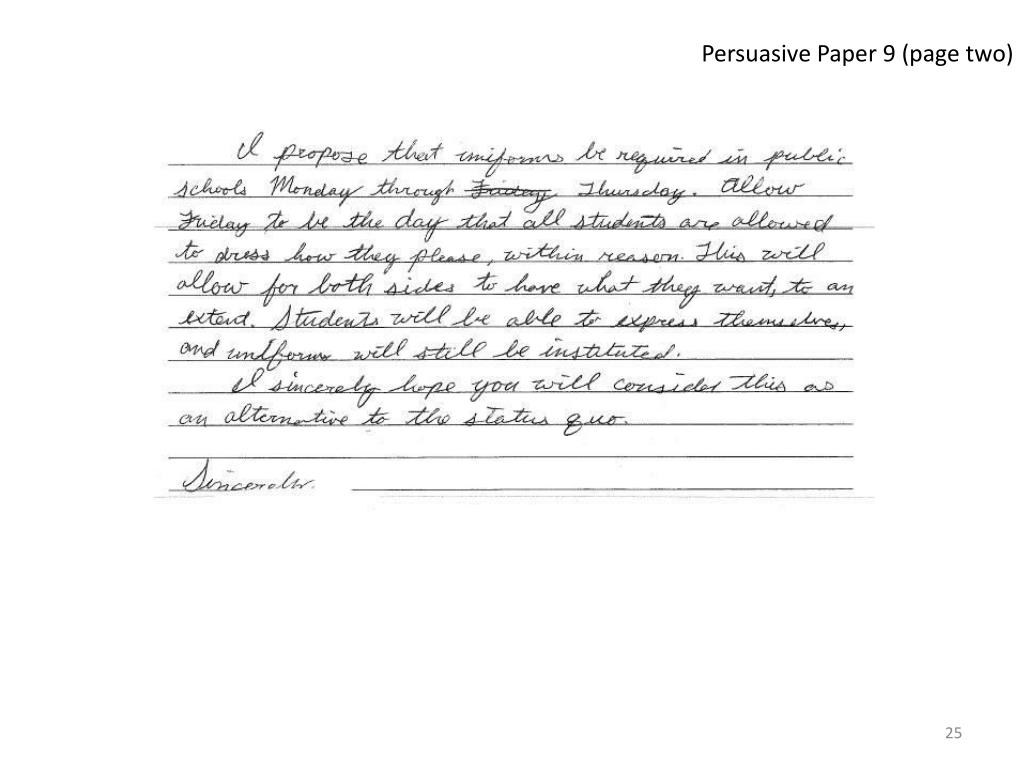 Persuasive Paper 9 (page two)
I propose that uniforms be required in public
schools Monday through Friday Thursday. Allow
Friday to be the day that all students are allowed
to dress how they please, within reason. This will
allow for both sides to have what they want, to an
extent. Students will be able to express themselves,
and uniforms will still be instituted.
I sincerely hope you will consider this as
an alternative to the status quo.
Sincerely.
25